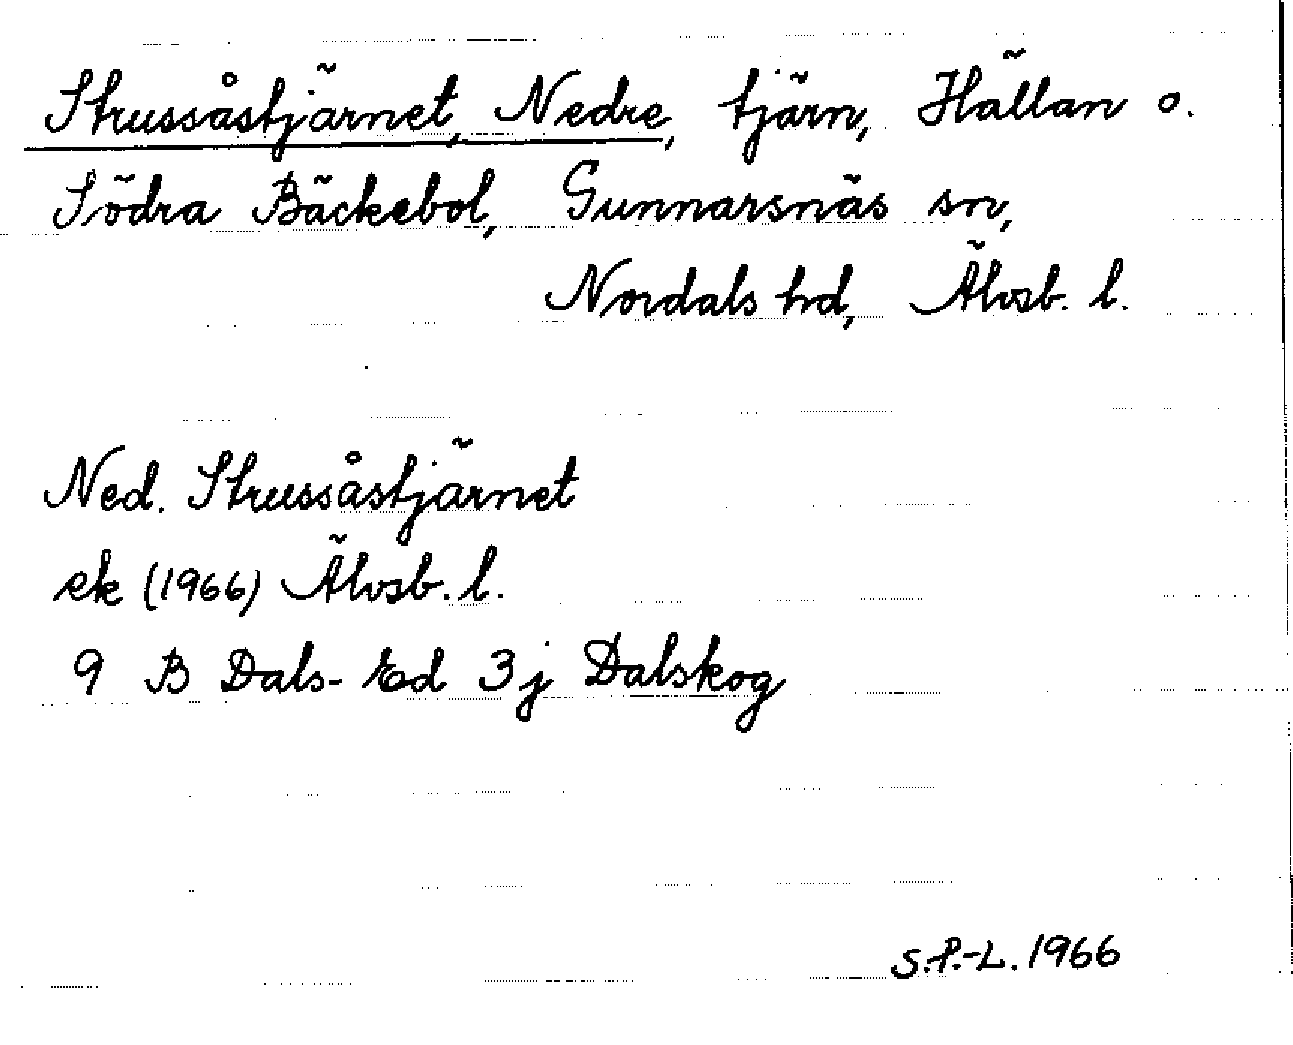 Strussåstjärnet, Nedre, tjärn, Hällan o.
Södra Bäckebol, Gunnarsnäs sn,
Nordals hd, Älvsb. l.
Ned. Strussåstjärnet
ek (1966) Älvsb. l.
9 B Dals-Ed 3j Dalskog
S.P.-L. 1966